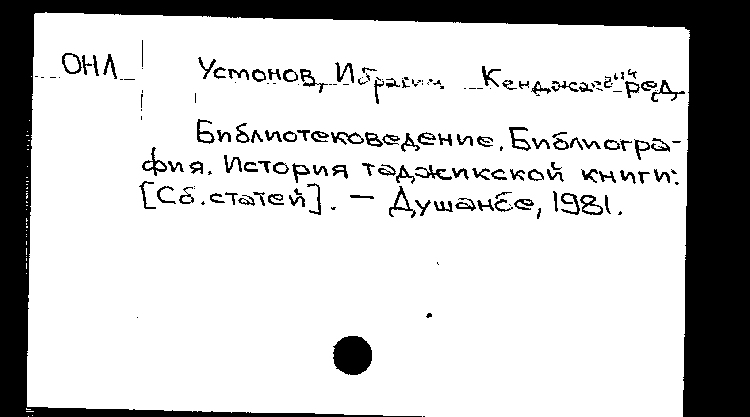 ОНЛ
Устонов, Ибрагим ред.
Библиотековедение. Библиогра-
фия. История таджикской книги:
[Сб. статей]. — Душанбе, 1981.